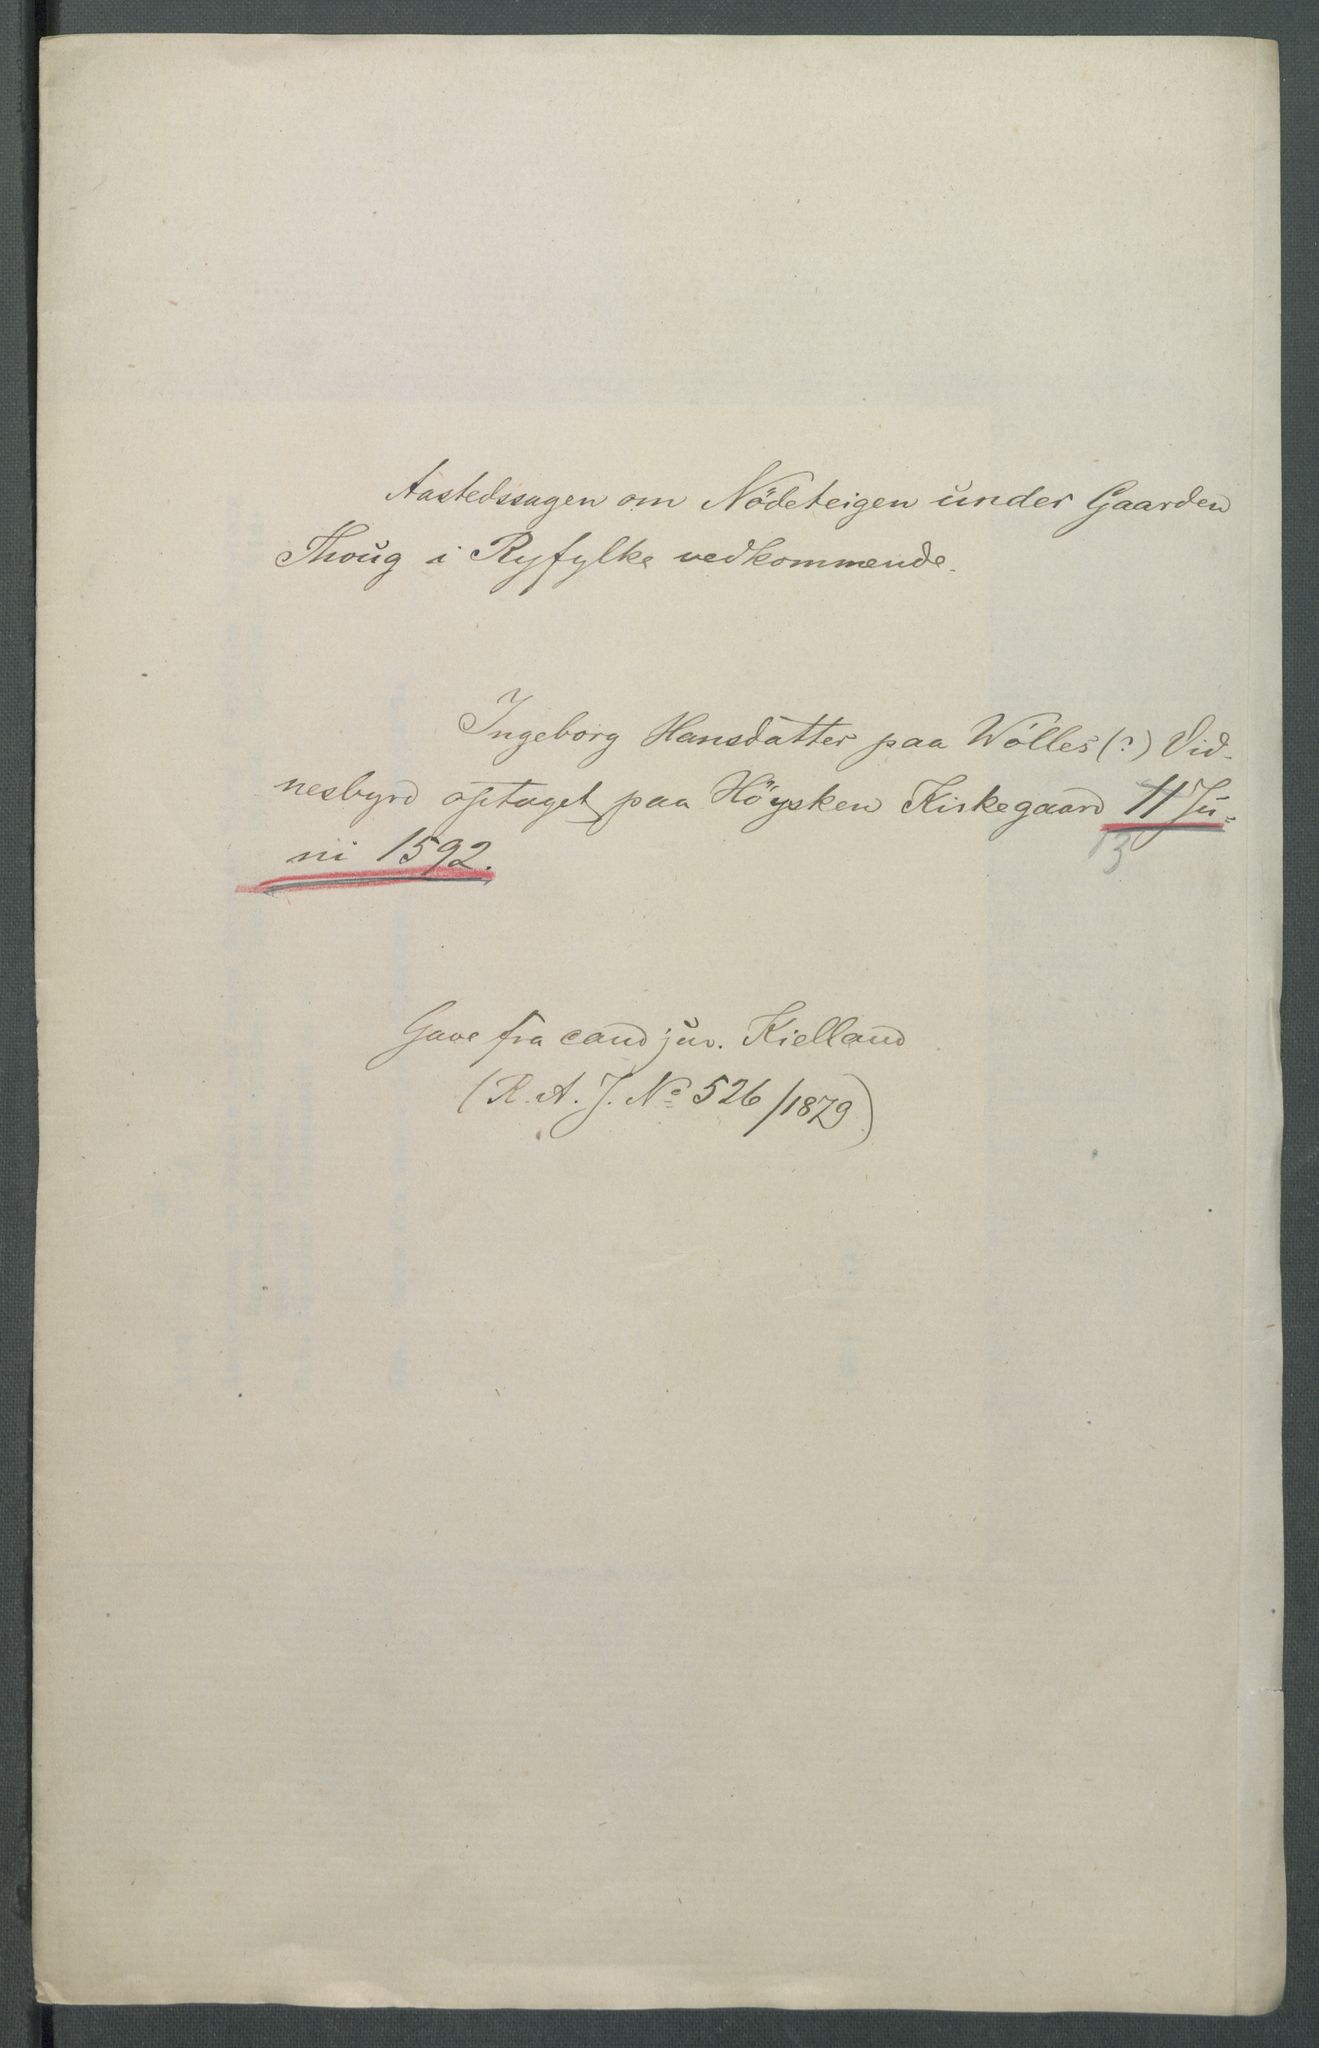 Aastedssagen om Nödeteigen under Gaarden
Thoug i Ryfylke vedkommende.
Ingeborg Hansdatter paa Wölles (?) Vid-
nesbyrd optaget paa Höysken Kirkegaard 11 Ju-
13
ni 1592.
Gave fra cand jur. Kielland
(R. A. J. No 526/1879)